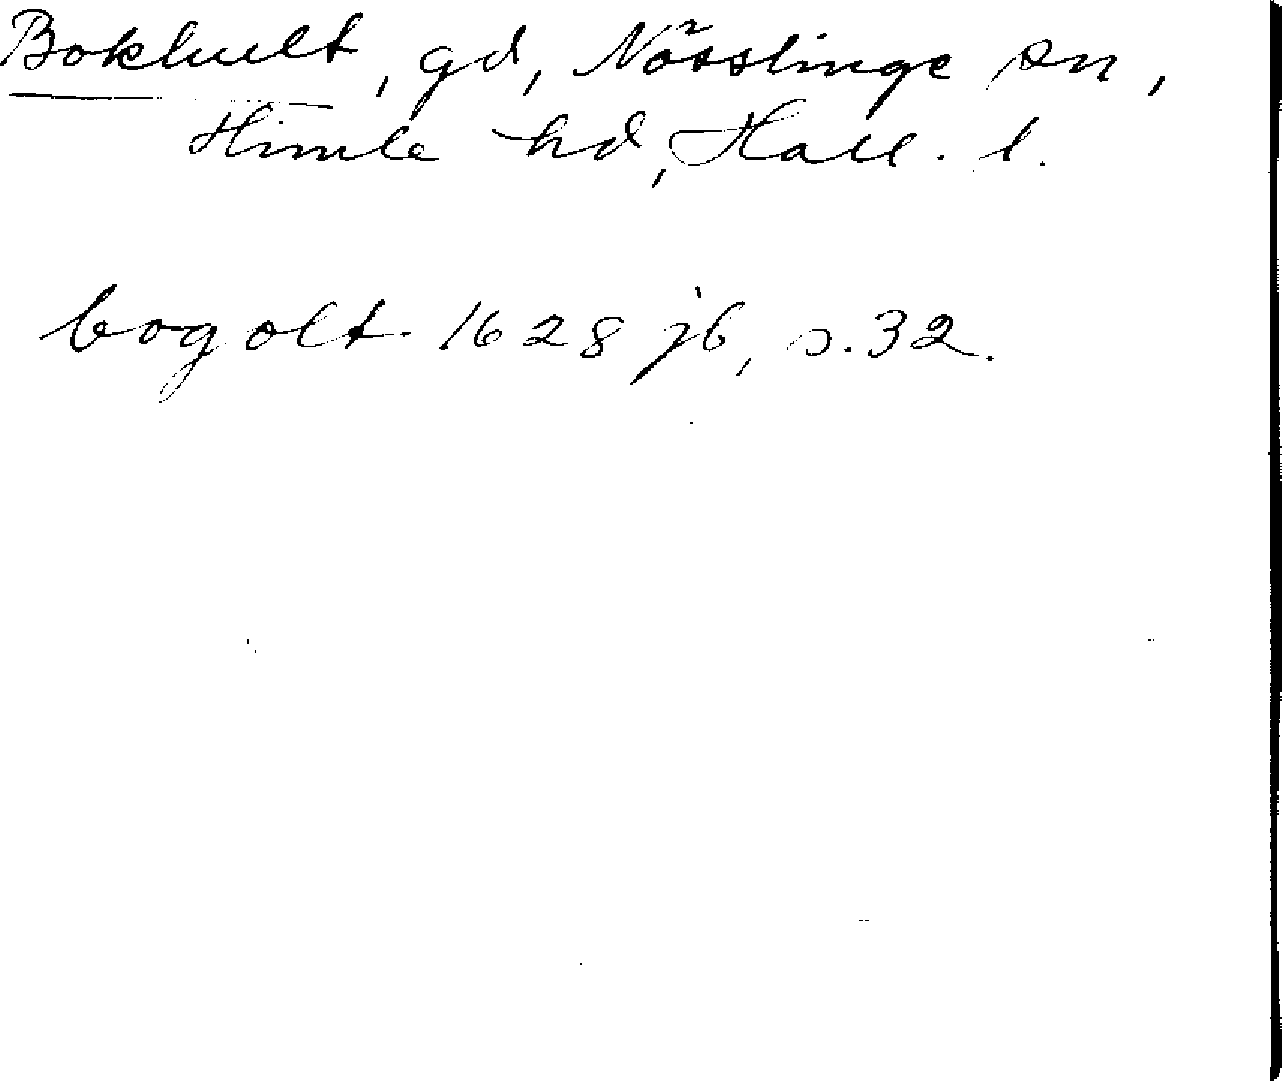 Bokhult, gd, Nösslinge sn,
Himle hd, Hall. l.
bogolt 1628 jb, s. 32.